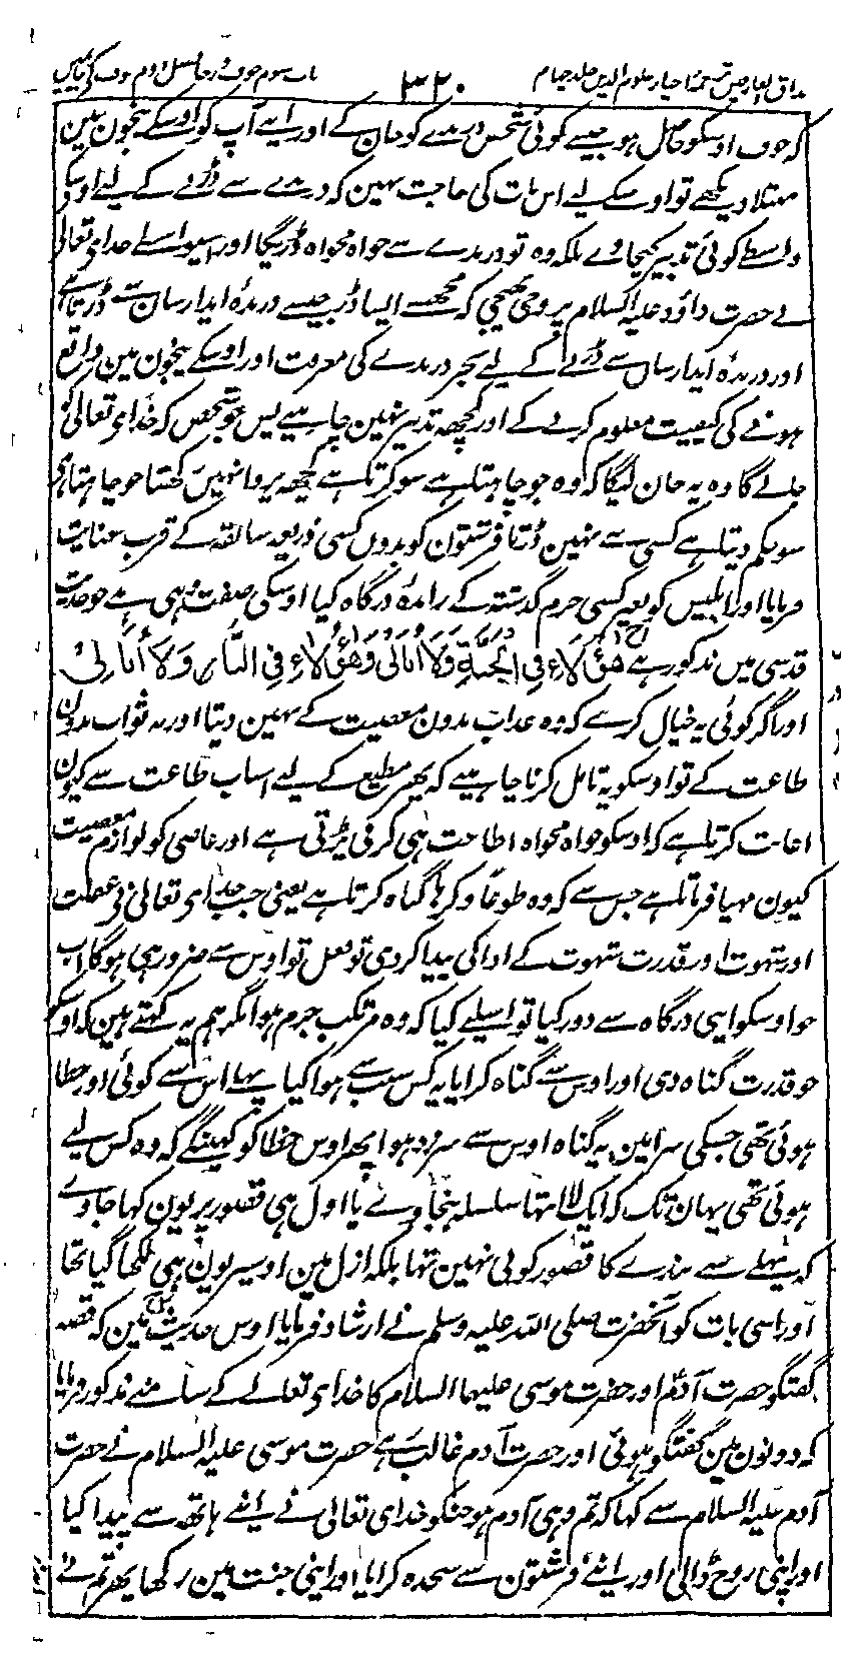 مذاق العارفین ترجمہ احیاء علوم الدین جلد چہارم ۳۲۰ باب سوم خوف و رجا فصل دوم خوف کے بیان میں
کہ خوف اوسکو حاصل ہو جیسے کوئی شخص درندے کو جان کے اور اپنے آپ کو اوسکے پنجون مین
مبتلا دیکھے تو اوسکے لیے اس بات کی حاجت نہین کہ درندے سے ڈرنے کے لیے اوسکے
واسطے کوئی تدبیر کیجاوے بلکہ وہ تو درندے سے خواہ مخواہ ڈریگا اور اسیواسطے خدای تعالی
نے حضرت داؤد علیہ السلام پر وحی بھیجی کہ مجھسے ایسا ڈر جیسے درندۂ ایذا رسان سے ڈرتا ہے
اور درندۂ ایذا رسان سے ڈرنے کے لیے بجز درندے کی معرفت اور اوسکے پنجون مین واقع
ہونے کی کیفیت معلوم کرنے کے اور کچھہ تدبیر نہین چاہیے پس جو شخص کہ خدای تعالی کو
جانے گا وہ یہ جان لیگا کہ وہ جو چاہتا ہے سو کرتا ہے کچھہ پروا نہین رکھتا جو چاہتا ہے
سو حکم دیتا ہے کسی سے نہین ڈرتا فرشتون کو بدون کسی ذریعہ سابقہ کے قرب عنایت
فرمایا اور ابلیس کو بغیر کسی جرم گذشتہ کے راندۂ درگاہ کیا اوسکی صفت وہی ہے جو حدیث
قدسی میں مذکور ہے هٰؤُلَاءِ فِی الْجَنَّةِ وَلَا اُبَالِی وَهٰؤُلَاءِ فِی النَّارِ وَلَا اُبَالِیْ
اور اگر کوئی یہ خیال کرے کہ وہ عذاب بدون معصیت کے نہین دیتا اور نہ ثواب بدون
طاعت کے تو اوسکو یہ تامل کرنا چاہیے کہ پھر مطیع کے لیے اسباب طاعت سے کیون
اعانت کرتا ہے کہ اوسکو خواہ مخواہ اطاعت ہی کرنی پڑتی ہے اور عاصی کو لوازم معصیت
کیون مہیا فرماتا ہے جس سے کہ وہ طوعًا و کرہًا گناہ کرتا ہے یعنی جب خدای تعالی نے غفلت
اور شہوت اور قدرت شہوت کے ادا کی پیدا کردی تو فعل تو اوس سے ضرور ہی ہوگا اب
جو اوسکو اپنی درگاہ سے دور کیا تو اسلیے کیا کہ وہ مرتکب جرم ہوا مگر ہم یہ کہتے ہین کہ اوسکو
جو قدرت گناہ دی اور اوس سے گناہ کرایا یہ کس سبب سے ہوا کیا پہلے اس سے کوئی اور خطا
ہوئی تھی جسکی سزا مین یہ گناہ اوس سے سرزد ہوا پھر اوس خطا کو کہینگے کہ وہ کس لیے
ہوئی تھی یہان تک کہ ایک لا انتہا سلسلہ بنجاوے یا اول ہی قصور پر یون کہا جاوے
کہ پہلے سے بندے کا قصور کوئی نہین تہا بلکہ ازل مین اوسپر یون ہی لکھا گیا تھا
اور اسی بات کو آنحضرت صلی اللہ علیہ وسلم نے ارشاد فرمایا اوس حدیث مین کہ قصہ
گفتگو حضرت آدم اور حضرت موسی علیہما السلام کا خدای تعالے کے سامنے مذکور فرمایا
کہ دونون مین گفتگو ہوئی اور حضرت آدم غالب رہے حضرت موسی علیہ السلام نے حضرت
آدم علیہ السلام سے کہا کہ تم وہی آدم ہو جنکو خدای تعالی نے اپنے ہاتھہ سے پیدا کیا
اور اپنی روح ڈالی اور اپنے فرشتون سے سجدہ کرایا اور اپنی جنت مین رکھا پھر تم نے